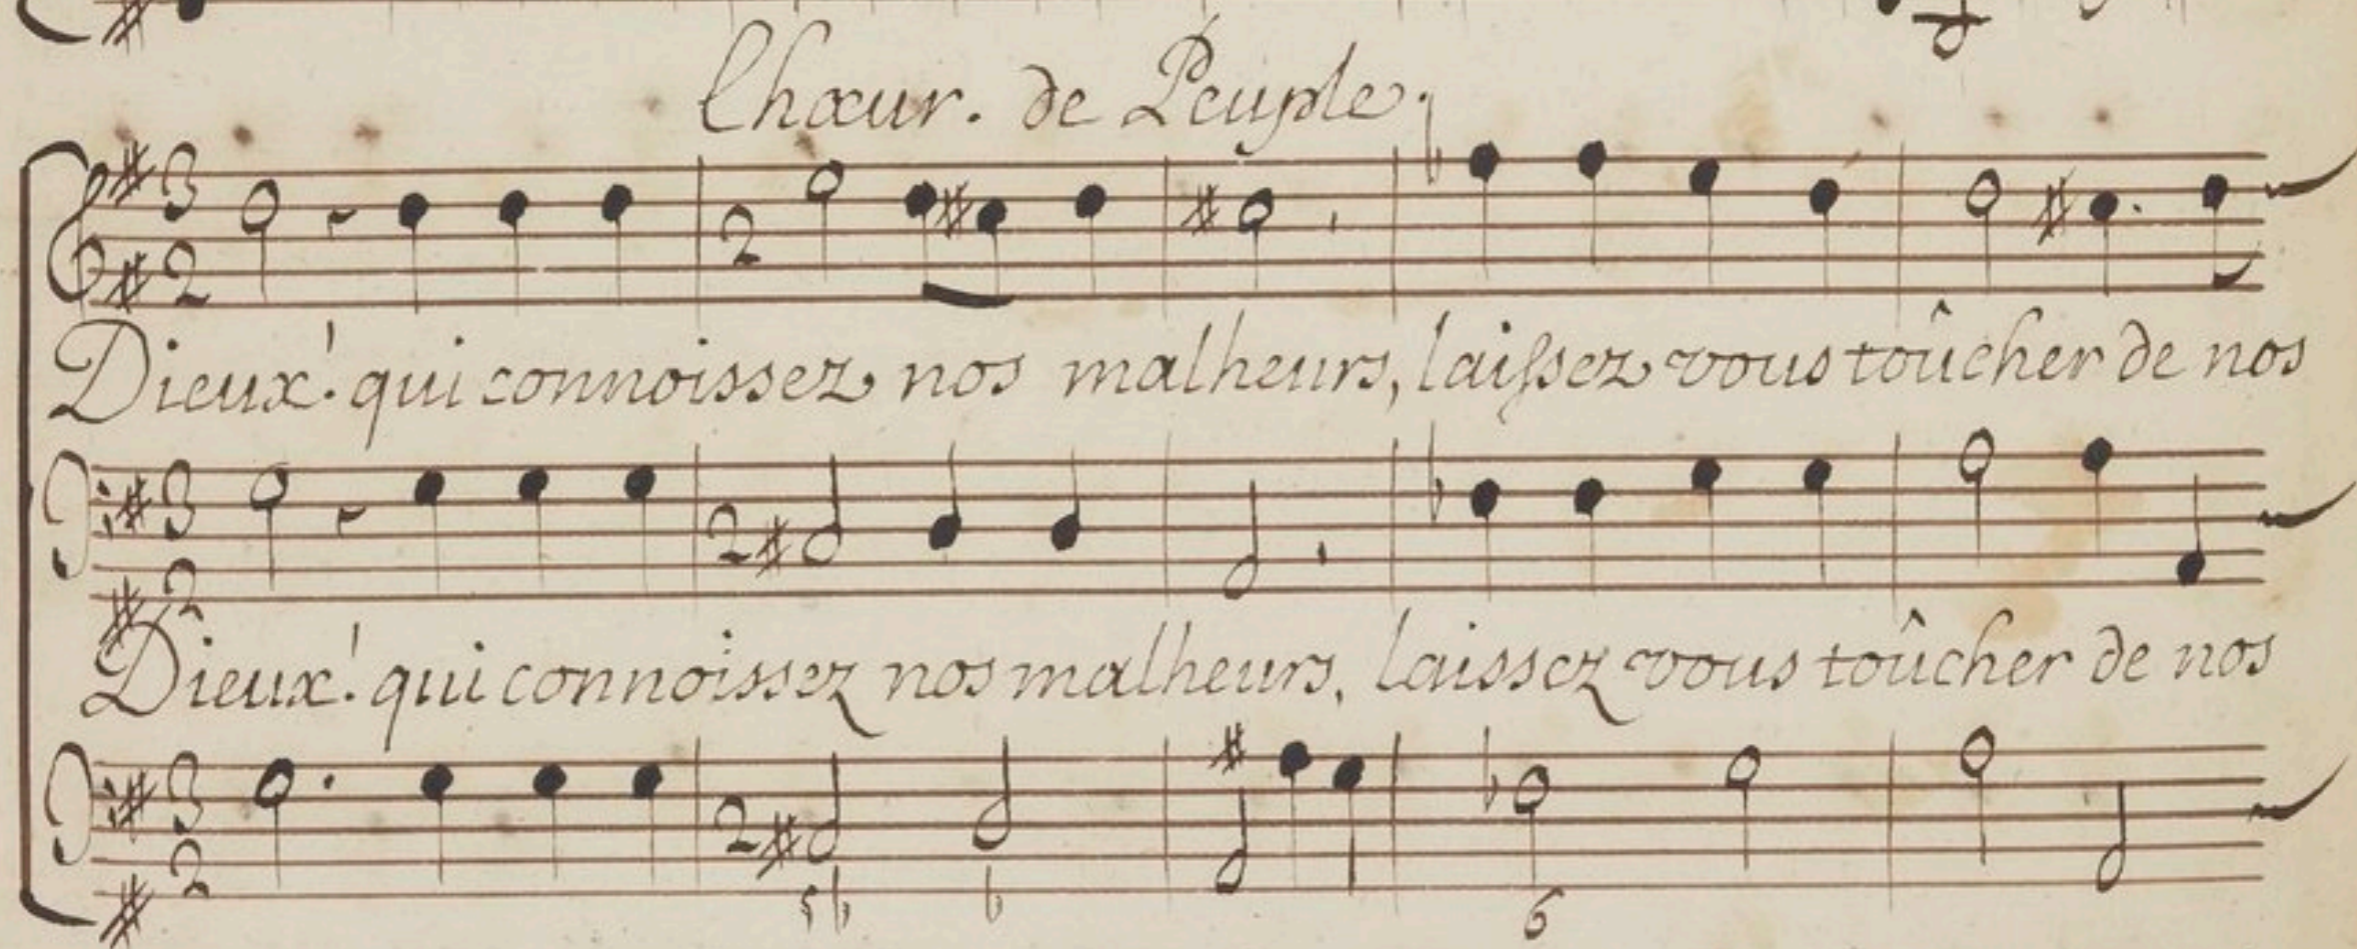 Chœur. de Peuple.
Dieux! qui connoissez nos malheurs, laissez vous toûcher de nos
Dieux! qui connoissez nos malheurs, laissez vous toûcher de nos